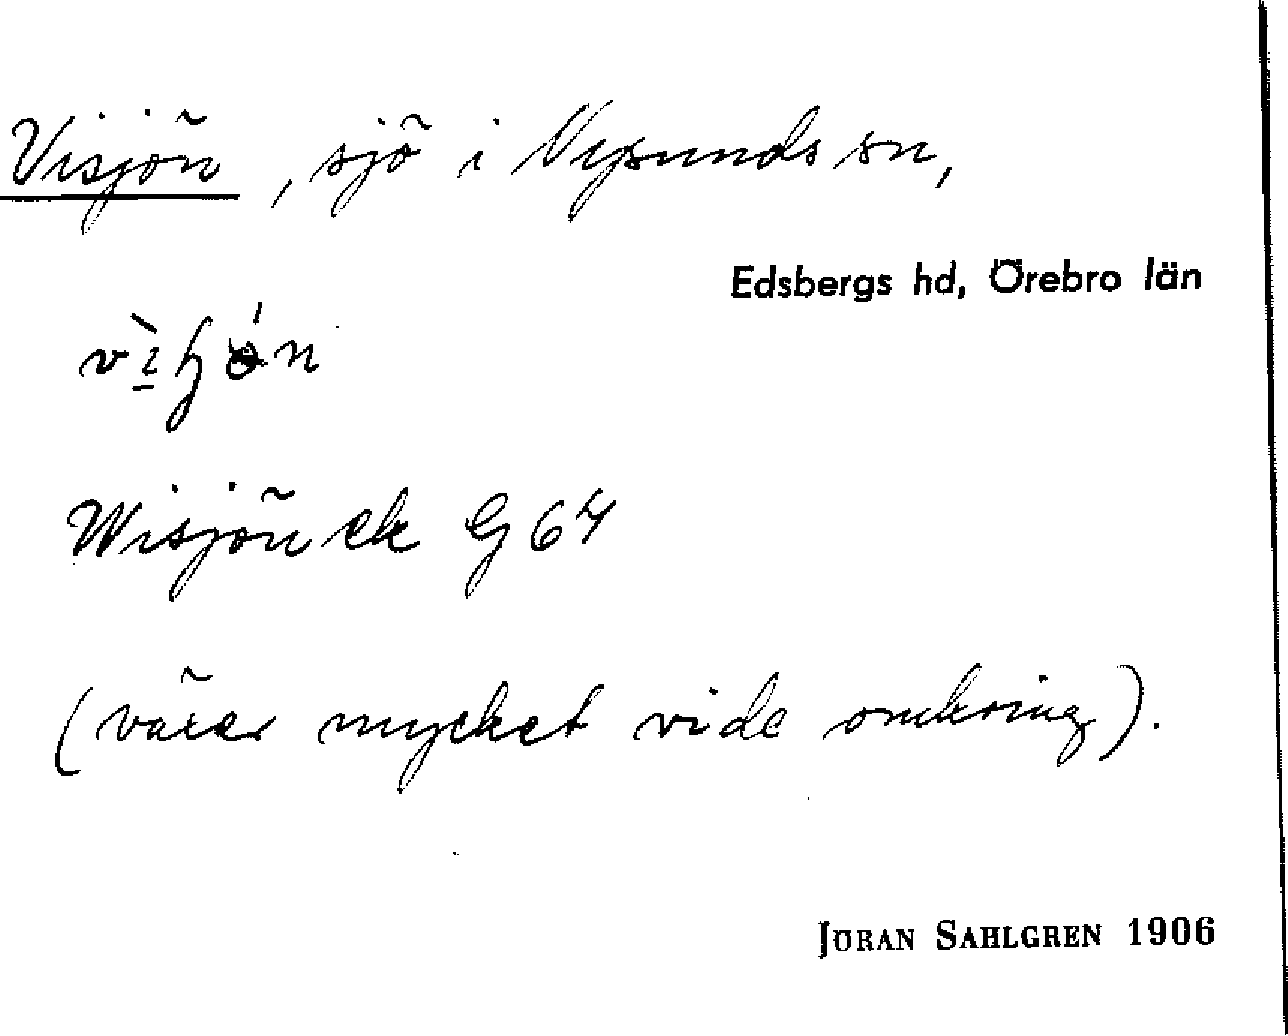 Visjön, sjö i Nysunds sn,
Edsbergs hd, Örebro län
Wisjön ek G 64
(växer mycket vide omkring).
JÖRAN SAHLGREN 1906